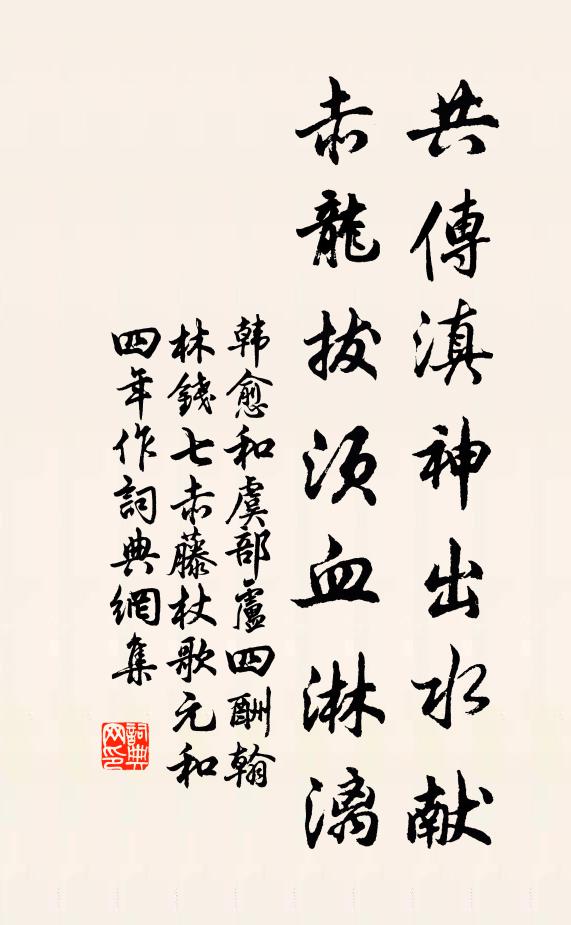 共傳滇神出水献
赤龍拔须血淋漓
韩愈和虞部盧四酬翰
林錢七赤藤杖歌元和
四年作詞典網集
詞典
网印